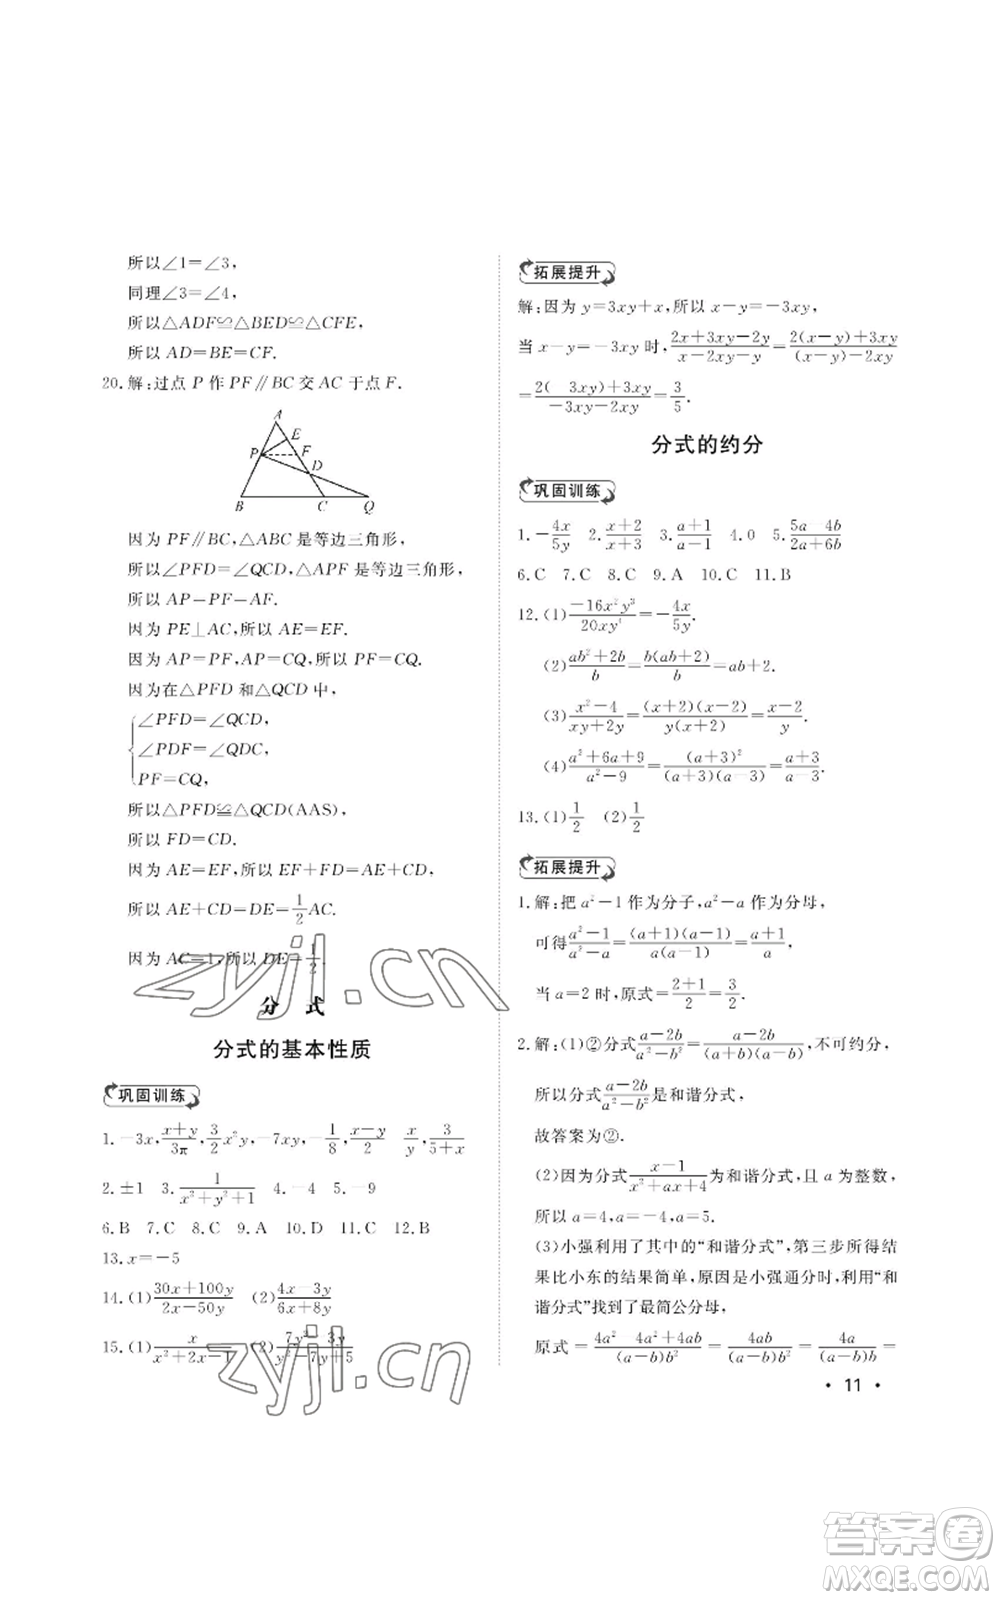 所以∠1=∠3,
同理∠3=∠4,
所以△ADF≌△BED≌△CFE,
所以 AD=BE=CF.
20.解:过点 P 作 PF∥BC 交 AC 于点 F.
A
E
P
F
D
B
C
Q
因为 PF∥BC,△ABC 是等边三角形,
所以∠PFD=∠QCD,△APF 是等边三角形,
所以 AP=PF=AF.
因为 PE⊥AC,所以 AE=EF.
因为 AP=PF,AP=CQ,所以 PF=CQ.
因为在△PFD 和△QCD 中,
∠PFD=∠QCD,
∠PDF=∠QDC,
PF=CQ,
所以△PFD≌△QCD(AAS),
所以 FD=CD.
因为 AE=EF,所以 EF+FD=AE+CD,
所以 AE+CD=DE=1/2 AC.
因为 AC=1,所以 DE=1/2.
分 式
分式的基本性质
巩固训练
1.-3x,(x+y)/3π,3/2 x²y,-7xy,-1/8,(x-y)/2 x/y,3/(5+x)
2.±1 3.1/(x²+y²+1) 4.-4 5.-9
6.B 7.C 8.C 9.A 10.D 11.C 12.B
13.x=-5
14.(1)(30x+100y)/(2x-50y) (2)(4x-3y)/(6x+8y)
15.(1)x/(x²+2x-1) (2)(7y²-3y)/(y²-7y+5)
拓展提升
解:因为 y=3xy+x,所以 x-y=-3xy,
当 x-y=-3xy 时,(2x+3xy-2y)/(x-2xy-y)=(2(x-y)+3xy)/((x-y)-2xy)
=(2(-3xy)+3xy)/(-3xy-2xy)=3/5.
分式的约分
巩固训练
1.-4x/5y 2.(x+2)/(x+3) 3.(a+1)/(a-1) 4.0 5.(5a-4b)/(2a+6b)
6.C 7.C 8.C 9.A 10.C 11.B
12.(1)(-16x²y³)/(20xy⁴)=-4x/5y.
(2)(ab²+2b)/b=b(ab+2)/b=ab+2.
(3)(x²-4)/(xy+2y)=(x+2)(x-2)/y(x+2)=(x-2)/y.
(4)(a²+6a+9)/(a²-9)=(a+3)²/(a+3)(a-3)=(a+3)/(a-3).
13.(1)1/2 (2)1/2
拓展提升
1.解:把 a²-1 作为分子,a²-a 作为分母,
可得(a²-1)/(a²-a)=(a+1)(a-1)/a(a-1)=(a+1)/a,
当 a=2 时,原式=(2+1)/2=3/2.
2.解:(1)②分式(a-2b)/(a²-b²)=(a-2b)/(a+b)(a-b),不可约分,
所以分式(a-2b)/(a²-b²)是和谐分式,
故答案为②.
(2)因为分式(x-1)/(x²+ax+4)为和谐分式,且 a 为整数,
所以 a=4,a=-4,a=5.
(3)小强利用了其中的“和谐分式”,第三步所得结
果比小东的结果简单,原因是小强通分时,利用“和
谐分式”找到了最简公分母,
原式=(4a²-4a²+4ab)/(a-b)b²=4ab/(a-b)b²=4a/(a-b)b=
• 11 •
zyjl.cn
zyjl.cn
答案卷
MXQE.COM